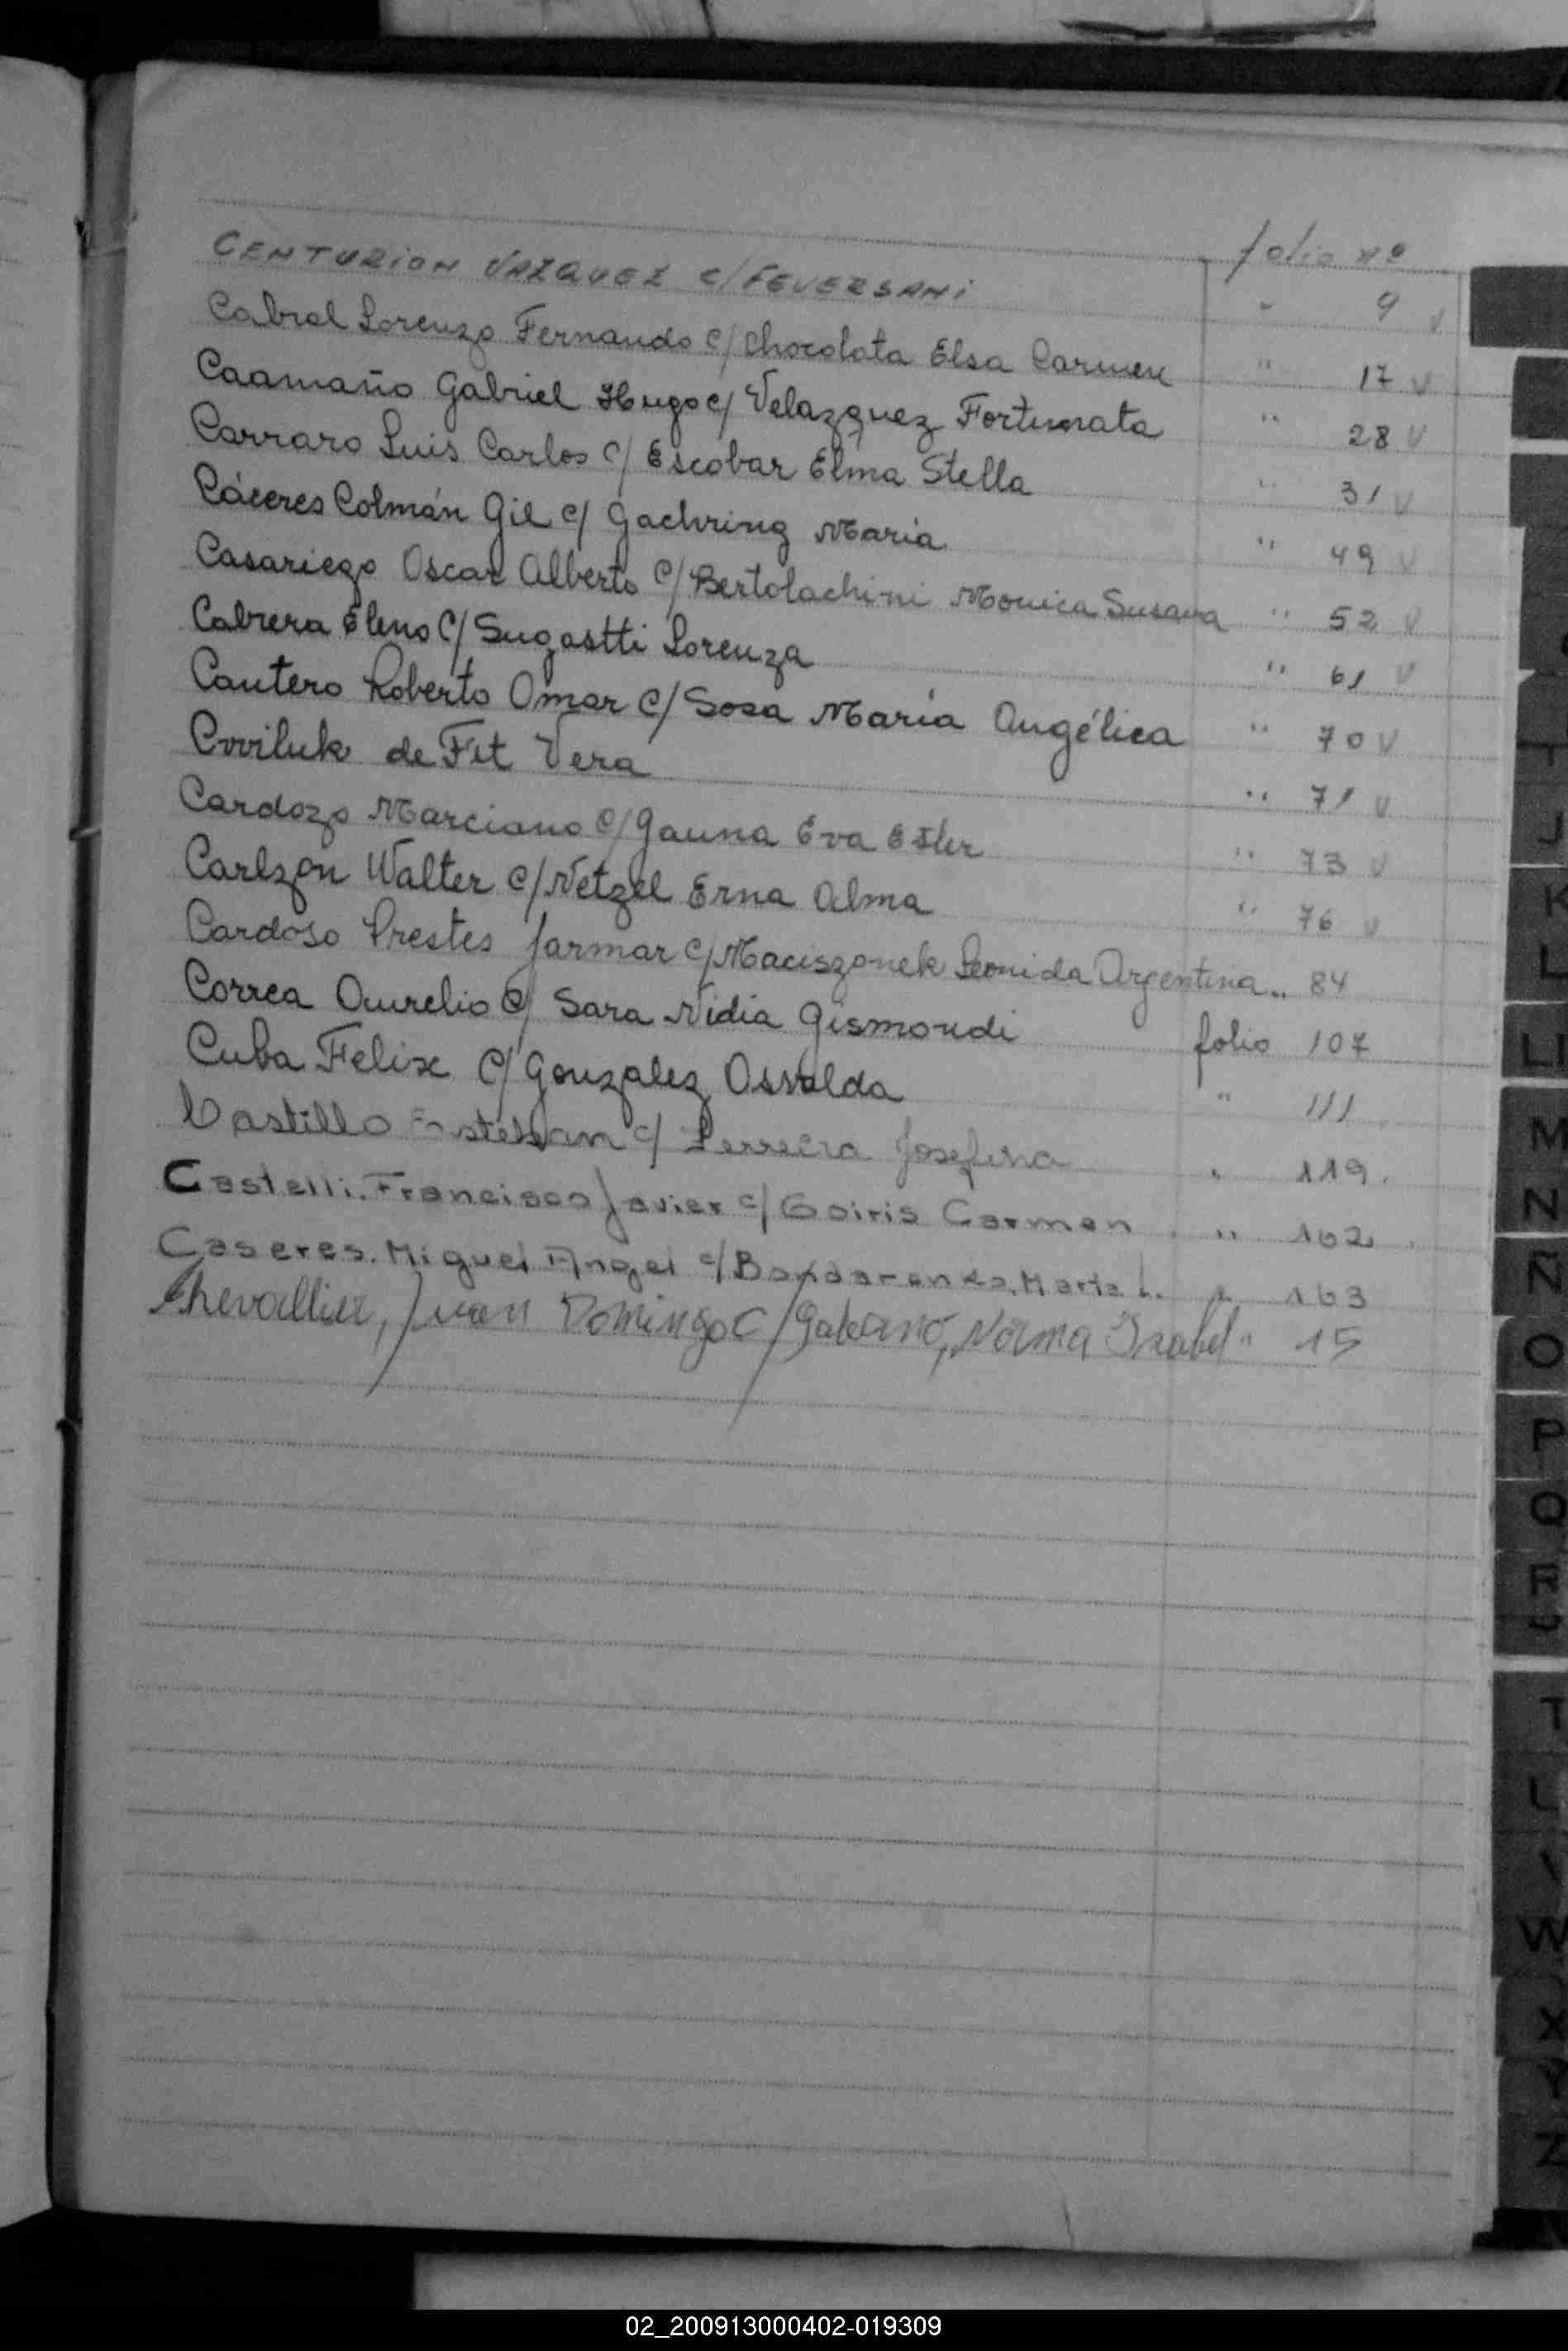 folio nº
CENTURION VAZQUEZ c/ FEVERSANI " 9 v
Cabral Lorenzo Fernando c/ Chocolata Elsa Carmen " 17 v
Caamaño Gabriel Hugo c/ Velazquez Fortunata " 28 v
Carraro Luis Carlos c/ Escobar Elma Stella " 31 v
Cáceres Colmán Gil c/ Gaehring María " 49 v
Casariego Oscar Alberto c/ Bertolachini Monica Susana " 52 v
Cabrera Eleno c/ Sugastti Lorenza " 61 v
Cantero Roberto Omar c/ Sosa María Angélica " 70 v
de Fit Vera " 71 v
Cardozo Marciano c/ Gauna Eva Ester " 73 v
Carlzon Walter c/ Netzel Erna Alma " 76 v
Cardoso Prestes Jarmar c/ Maciszonek Leonida Argentina " 84
Correa Aurelio c/ Sara Nidia Gismondi folio 107
Cuba Felix c/ Gonzalez Osvalda " 111
Castillo Esteban c/ Ferreira Josefina " 119.
Castelli. Francisco Javier c/ Goiris Carmen " 162
Caseres. Miguel Angel c/ Bondarenko. Marta L. " 163
Chevallier, Juan Domingo c/ Galeano, Norma Isabel " 15
J
K
L
LL
M
N
Ñ
O
P
Q
R
T
W
X
Y
Z
02_200913000402-019309